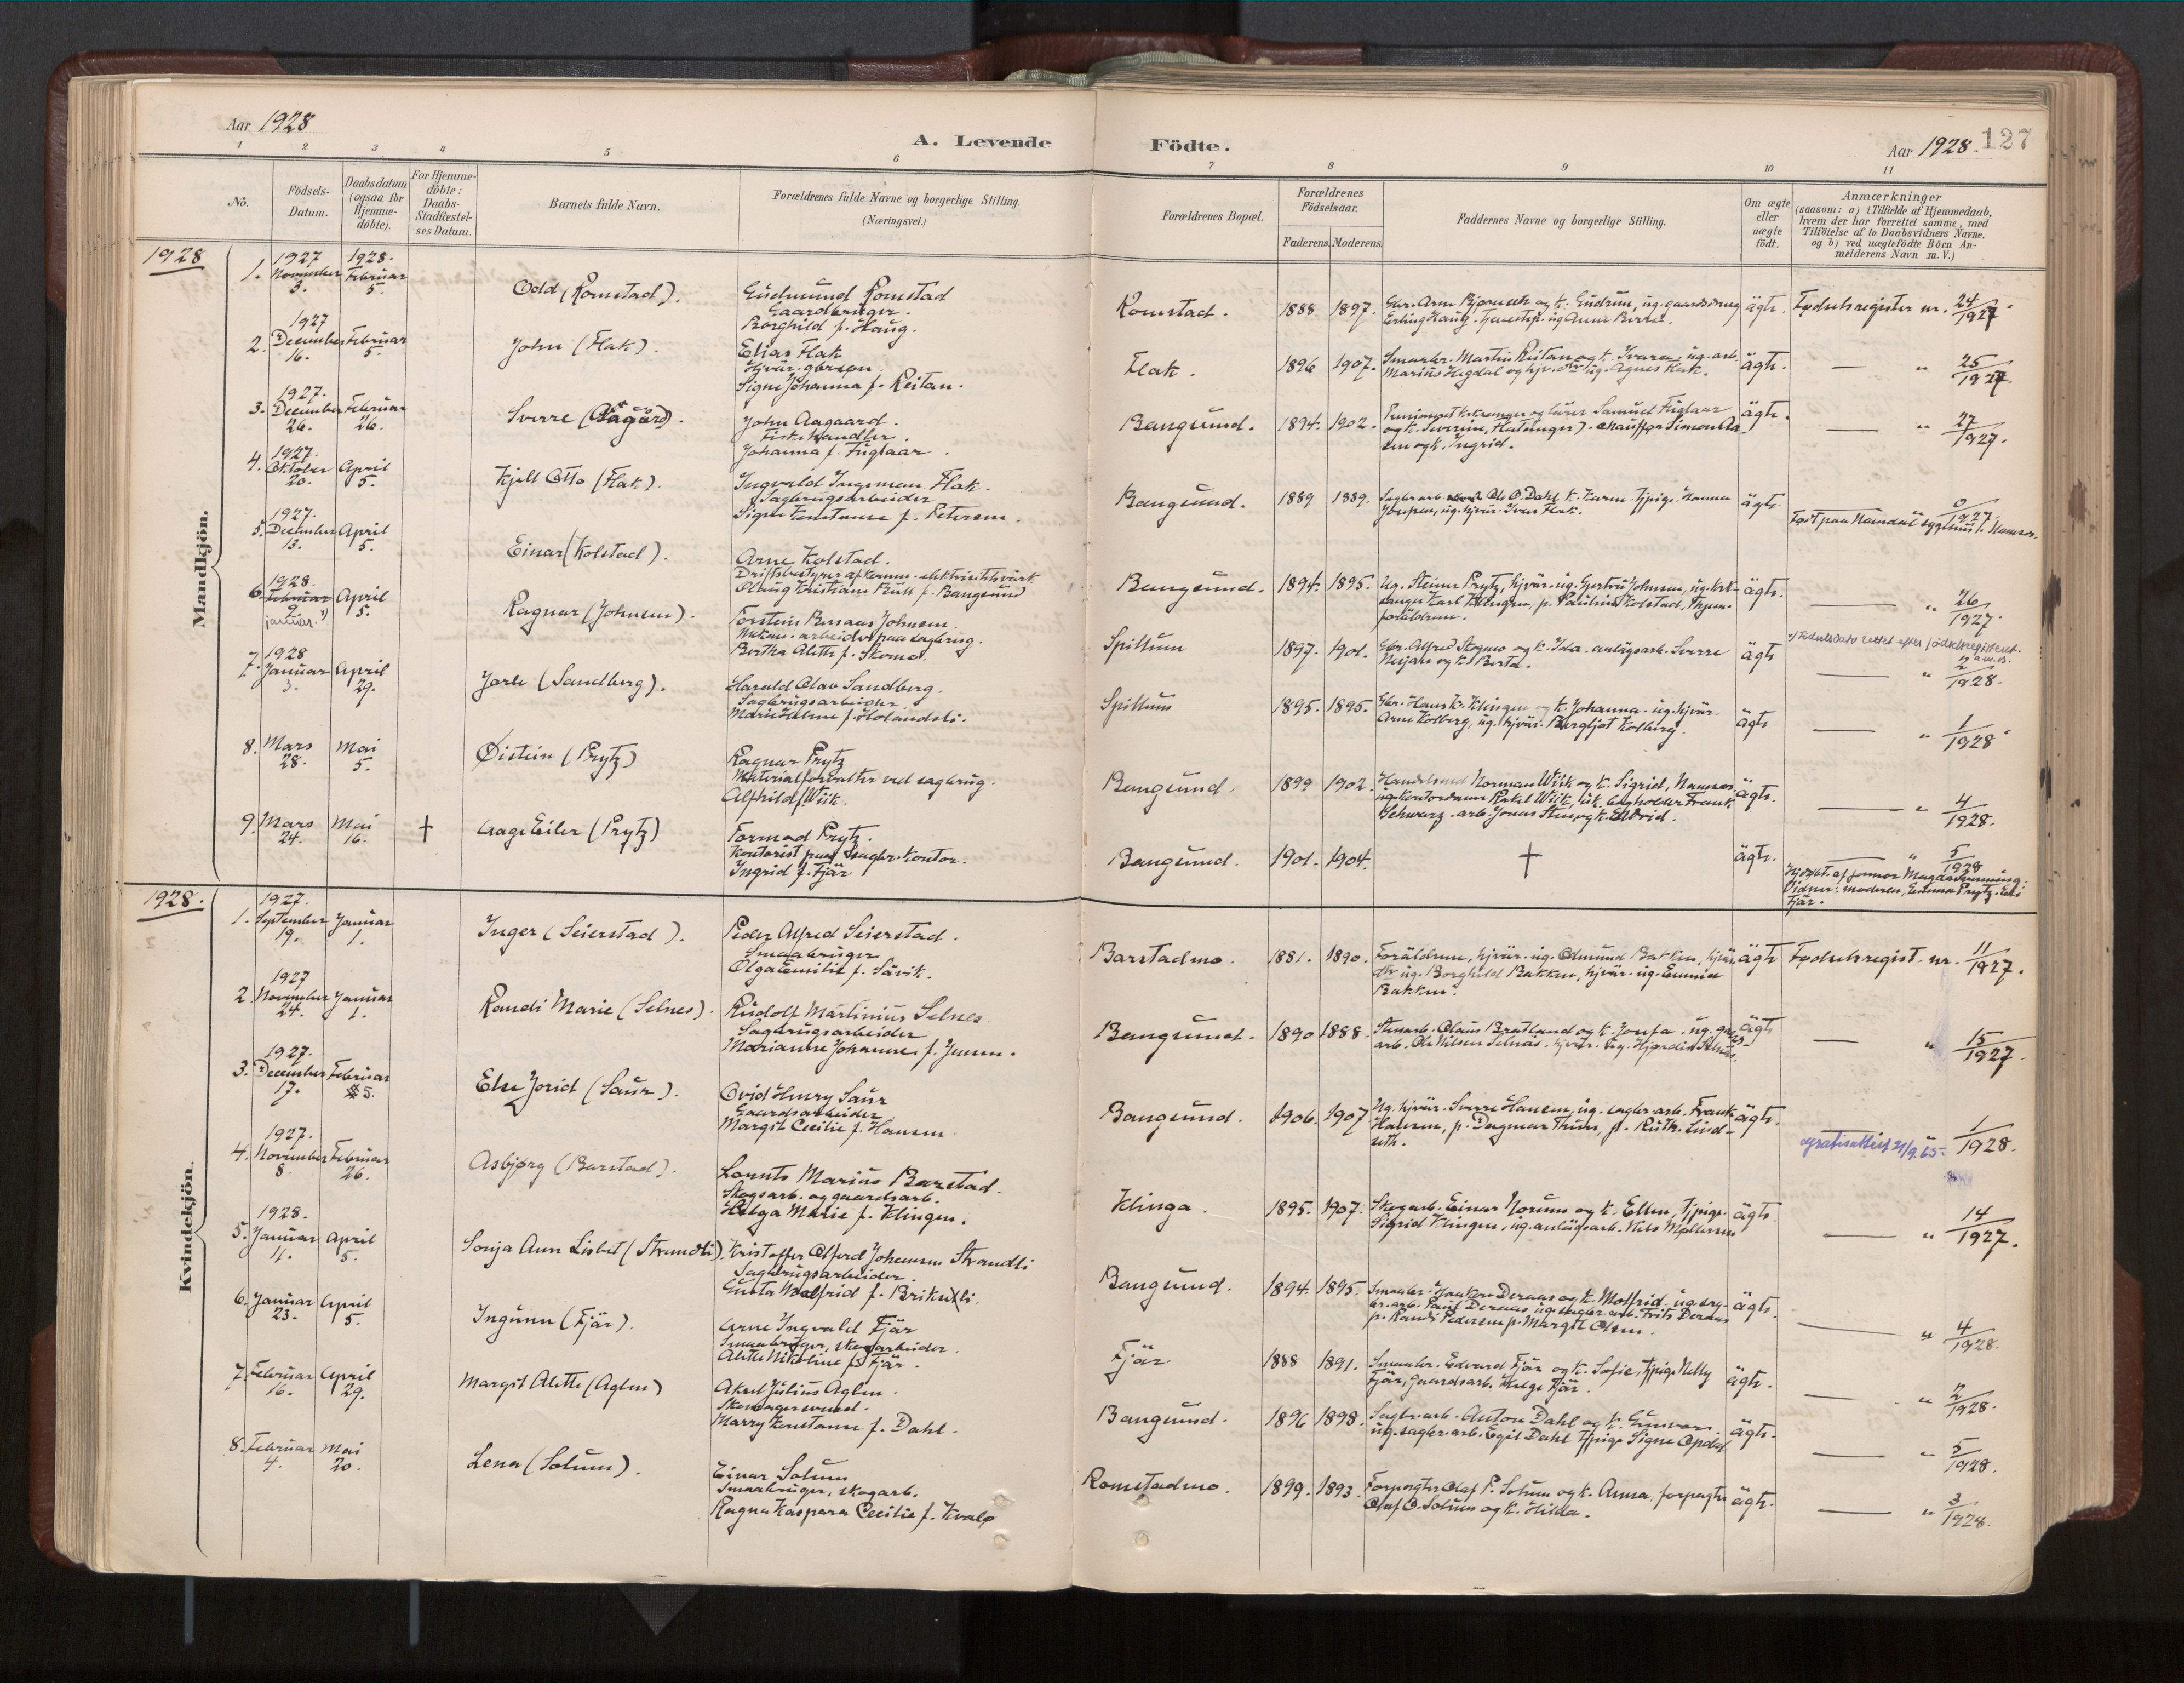 Aar 1928
A. Levende
Födte.
Aar 1928.
127
1 2 3 4 5 6 7 8 9 10 11
No.
Födsels-
Datum.
Daabsdatum
(ogsaa for
Hjemme-
döbte).
For Hjemme-
döbte:
Daabs-
Stadfæstel-
ses Datum.
Barnets fulde Navn.
Forældrenes fulde Navne og borgerlige Stilling.
(Næringsvei.)
Forældrenes Bopæl.
Forældrenes
Födselsaar.
Faderens. Moderens.
Faddernes Navne og borgerlige Stilling.
Om ægte
eller
uægte
födt.
Anmærkninger
(saasom: a) i Tilfælde af Hjemmedaab,
hvem der har forrettet samme, med
Tilföielse af to Daabsvidners Navne,
og b) ved uægtefödte Börn An-
melderens Navn m. V.)
1928
Mandkjön.
1. 1927 November 3. 1928. Februar 5.
Odd (Romstad).
Gudmund Romstad
Gaardbruger.
Borghild f. Haug.
Romstad. 1888. 1897.
ägte. Fødselsregister nr. 24/1927.
2. 1927 December 16. Februar 5.
John (Flak).
Elias Flak
Signe Johanna f. Reitan.
Flak. 1896 1907.
Smaabr. Martin Reitan og k.
Marius Hegdal og hjv. Agnes Flak.
ägte. — " 25/1927.
3. 1927. December 26. Februar 26.
Sverre (Aagård).
John Aagaard.
Fiskehandler.
Johanna f. Fuglaar.
Bangsund. 1894. 1902.
og lärer Samuel Fuglaar
chauffør Simon
og k. Ingrid.
ägte. — " 27/1927.
4. 1927. Oktober 20. April 5.
Kjell Otto (Flak).
Ingvald Ingeman Flak.
Sagbrugsarbeider
Signe Konstanse f. Petersen.
Bangsund. 1889 1889.
Ole O. Dahl
ägte. 0/1927.
Født paa Namdal sygehus i Namsos.
5. 1927. December 13. April 5.
Einar (Kolstad).
Arne Kolstad.
Driftsbestyrer af komm. elektricitsverk
f. Bangsund
Bangsund. 1894. 1895.
Ug. Steinar Prytz,
Karl Klingen, p. Paulina Kolstad,
foräldrene.
ägte. — " 26/1927.
6. 1928. Februar 2. januar. ¹) April 5.
Ragnar (Johnsen).
Torstein Johnsen
arbeider paa sagbrug.
Bertha Alette f.
Spillum 1897. 1901.
Gbr. Alfred Skogmo og k. Ida. anlägsarb. Sverre
og k. Berta.
ägte ¹) Fødselsdato rettet efter fødselsregisteret.
— " 2/1928.
7. 1928 Januar 3. April 29.
Jarle (Sandberg).
Harald Olav Sandberg.
Sagbrugsarbeider.
Marie Helene f. Holandsli.
Spillum 1895. 1895.
Gbr. Hans Kr. Klingen og k. Johanna. ug. hjvär.
Arne Kolberg, ug. hjvär. Bergljot Kolberg.
ägte — " 1/1928
8. Mars 28. Mai 5.
Øistein (Prytz)
Ragnar Prytz
Materialforvalter ved sagbrug.
Alfhild f. Wiik.
Bangsund. 1899 1902.
Norman Wiik og k. Sigrid, Namsos
Rakel Wiik, Frank
Schwarz.
ägte. — " 4/1928.
9. Mars 24. Mai 16. †
Aage Eiler (Prytz)
Tormod Prytz.
Kontorist paa sagbr. kontor.
Ingrid f. Fjär
Bangsund. 1901. 1904. †
ägte. — " 5/1928
Hjdøbt. af jormor Magda
Vidner: moderen, Emma Prytz.
Fjär.
1928.
Kvindekjön.
1. 1927. September 19. Januar 1.
Inger (Seierstad).
Peder Alfred Seierstad.
Smaabruger
Olga Emilie f. Sävik.
Barstadmo. 1881. 1890.
Foräldrene, hjvär. ug. Odmund Bakken, hjvär
ug. Borghild Bakken, hjvär. ug.
Bakken.
ägte Fødselsregist. nr. 11/1927.
2. 1927 November 24. Januar 1.
Randi Marie (Selnes).
Rudolf Martinius Selnes
Sagbrugsarbeider
Marianne Johanne f. Jensen.
Bangsund. 1890 1888.
Olaus Bratland og k.
arb. Ole Nilsen Selnäs.
ägte — " 15/1927.
3. 1927. December 17. Februar 5.
Else Jorid (Saur).
Ovid Henry Saur
Gaardsarbeider
Margit Cecilie f. Hansen
Bangsund. 1906. 1907
Ug. hjvär. Sverre Hansen, ug. sagbr. arb. Frank
Hansen, p. Dagmar p. Ruth Lind-
seth.
ägte. — " 1/1928.
gratisattest 21/9.65.
4. 1927. November 8. Februar 26.
Asbjørg (Barstad).
Lorents Marius Barstad.
Skogsarb. og gaardsarb.
Helga Marie f. Klingen.
Klinga. 1895. 1907.
Skogarb. Einar Norum og k. Ellen, Tjpige.
Sigrid Klingen, ug. anlägsarb. Nils
ägte. — " 14/1927.
5. 1928. Januar 11. April 5.
Sonja Ann Lisbet (Strandli).
Kristoffer Alfred Johansen Strandli
Sagbrugsarbeider.
Bangsund. 1894. 1895.
Deraas og k. Molfrid
Paul Deraas, ug. sagbr. arb. Frits Deraas
p. Randi Pedersen p. Margit Olsen.
ägte. — " 4/1928.
6. Januar 23. April 5.
Ingunn (Fjär).
Arne Ingvald Fjär
Smaabruger, skogarbeider.
Alette Nikoline f. Fjär.
Fjär 1888 1891.
Smaabr. Edvard Fjär og k. Sofie, Tjpige Nelly
Fjär, gaardsarb. Helge Fjär.
ägte. — " 2/1928.
7. Februar 16. April 29.
Margit Alette (Aglen)
Aksel Julius Aglen.
Skomagersvend.
Marry Konstanse f. Dahl.
Bangsund. 1896 1898.
Sagbr. arb. Anton Dahl og k. Gunvor.
ug. sagbr. arb. Egil Dahl Tjpige Signe Opdal
ägte. — " 5/1928.
8. Februar 4. Mai 20.
Lena (Solum).
Einar Solum
Smaabruger, skogarb.
Ragna Kaspara Cecilie f. Kvalø
Romstadmo. 1899. 1893.
Forpagter Olaf P. Solum og k. Anna, forpagter
Olaf O. Solum og k. Hilda.
ägte. — " 3/1928.